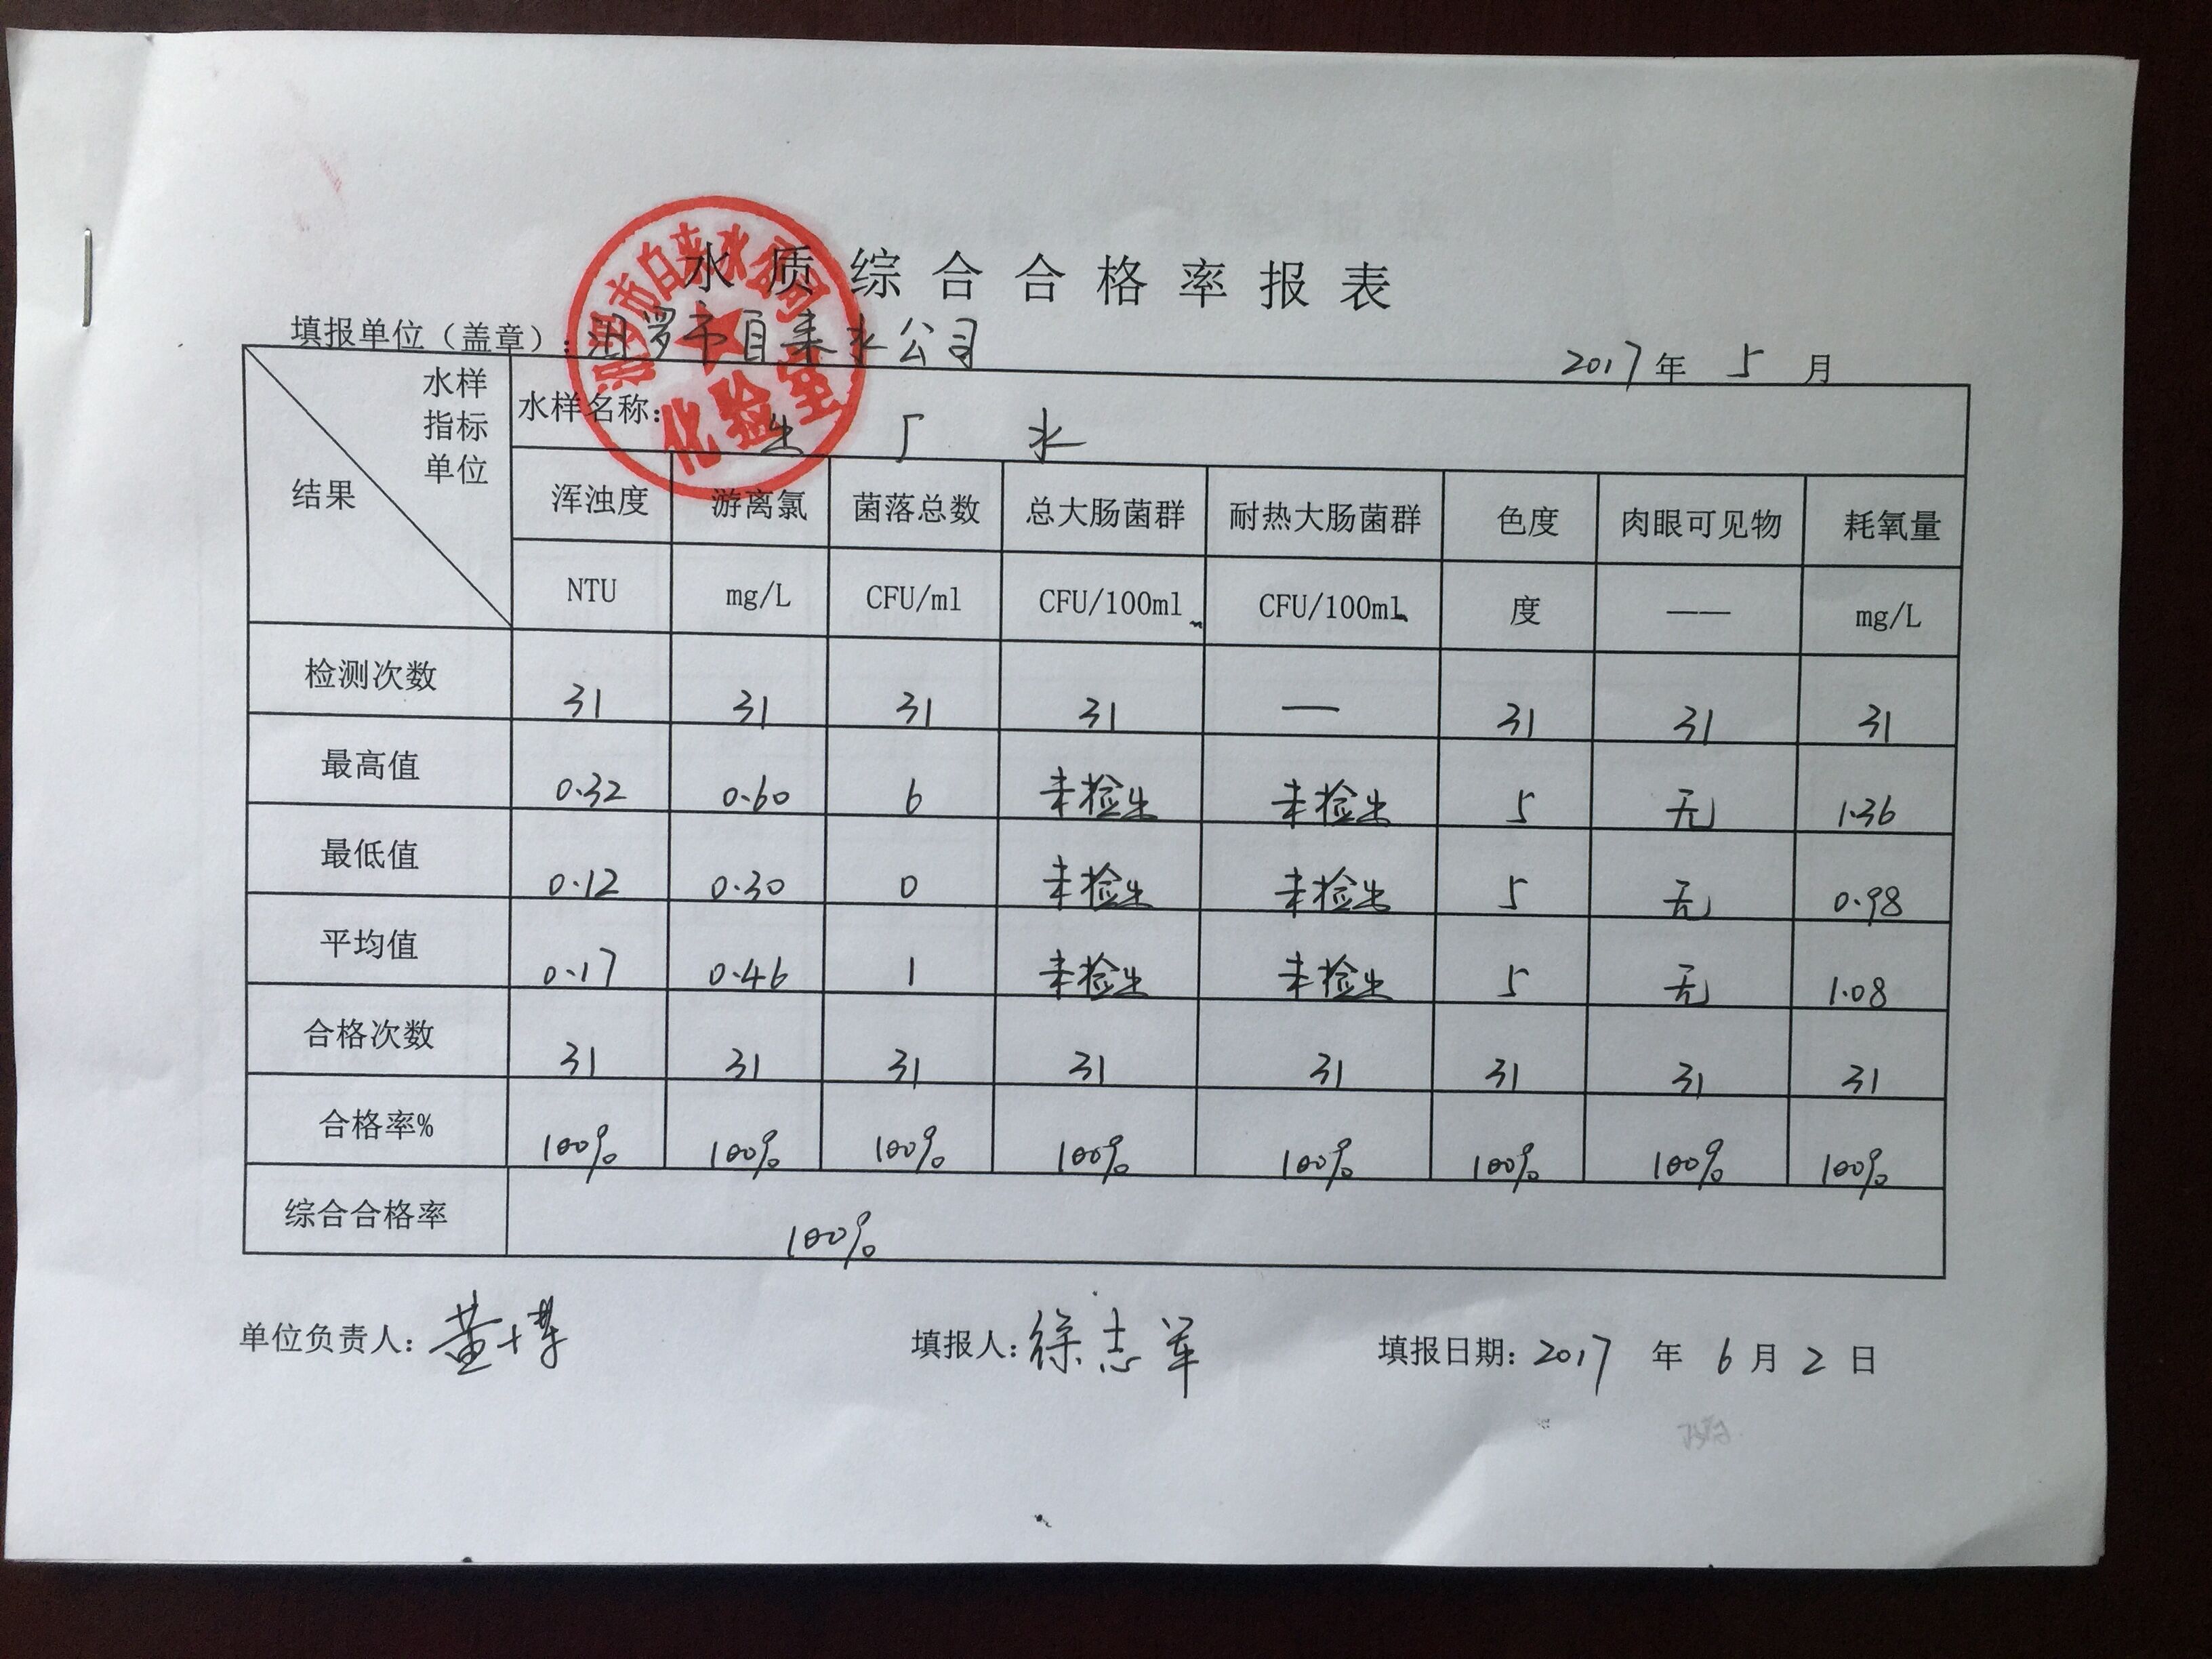 水质综合合格率报表
汨罗市自来水公司
化验室
填报单位（盖章）：汨罗市自来水公司 2017年 5 月
水样 指标 单位 结果 水样名称： 出 厂 水
浑浊度 游离氯 菌落总数 总大肠菌群 耐热大肠菌群 色度 肉眼可见物 耗氧量
NTU mg/L CFU/ml CFU/100ml CFU/100ml 度 —— mg/L
检测次数 31 31 31 31 — 31 31 31
最高值 0.32 0.60 6 未检出 未检出 5 无 1.36
最低值 0.12 0.30 0 未检出 未检出 5 无 0.98
平均值 0.17 0.46 1 未检出 未检出 5 无 1.08
合格次数 31 31 31 31 31 31 31 31
合格率% 100% 100% 100% 100% 100% 100% 100% 100%
综合合格率 100%
单位负责人：黄博 填报人：徐志军 填报日期：2017 年 6 月 2 日